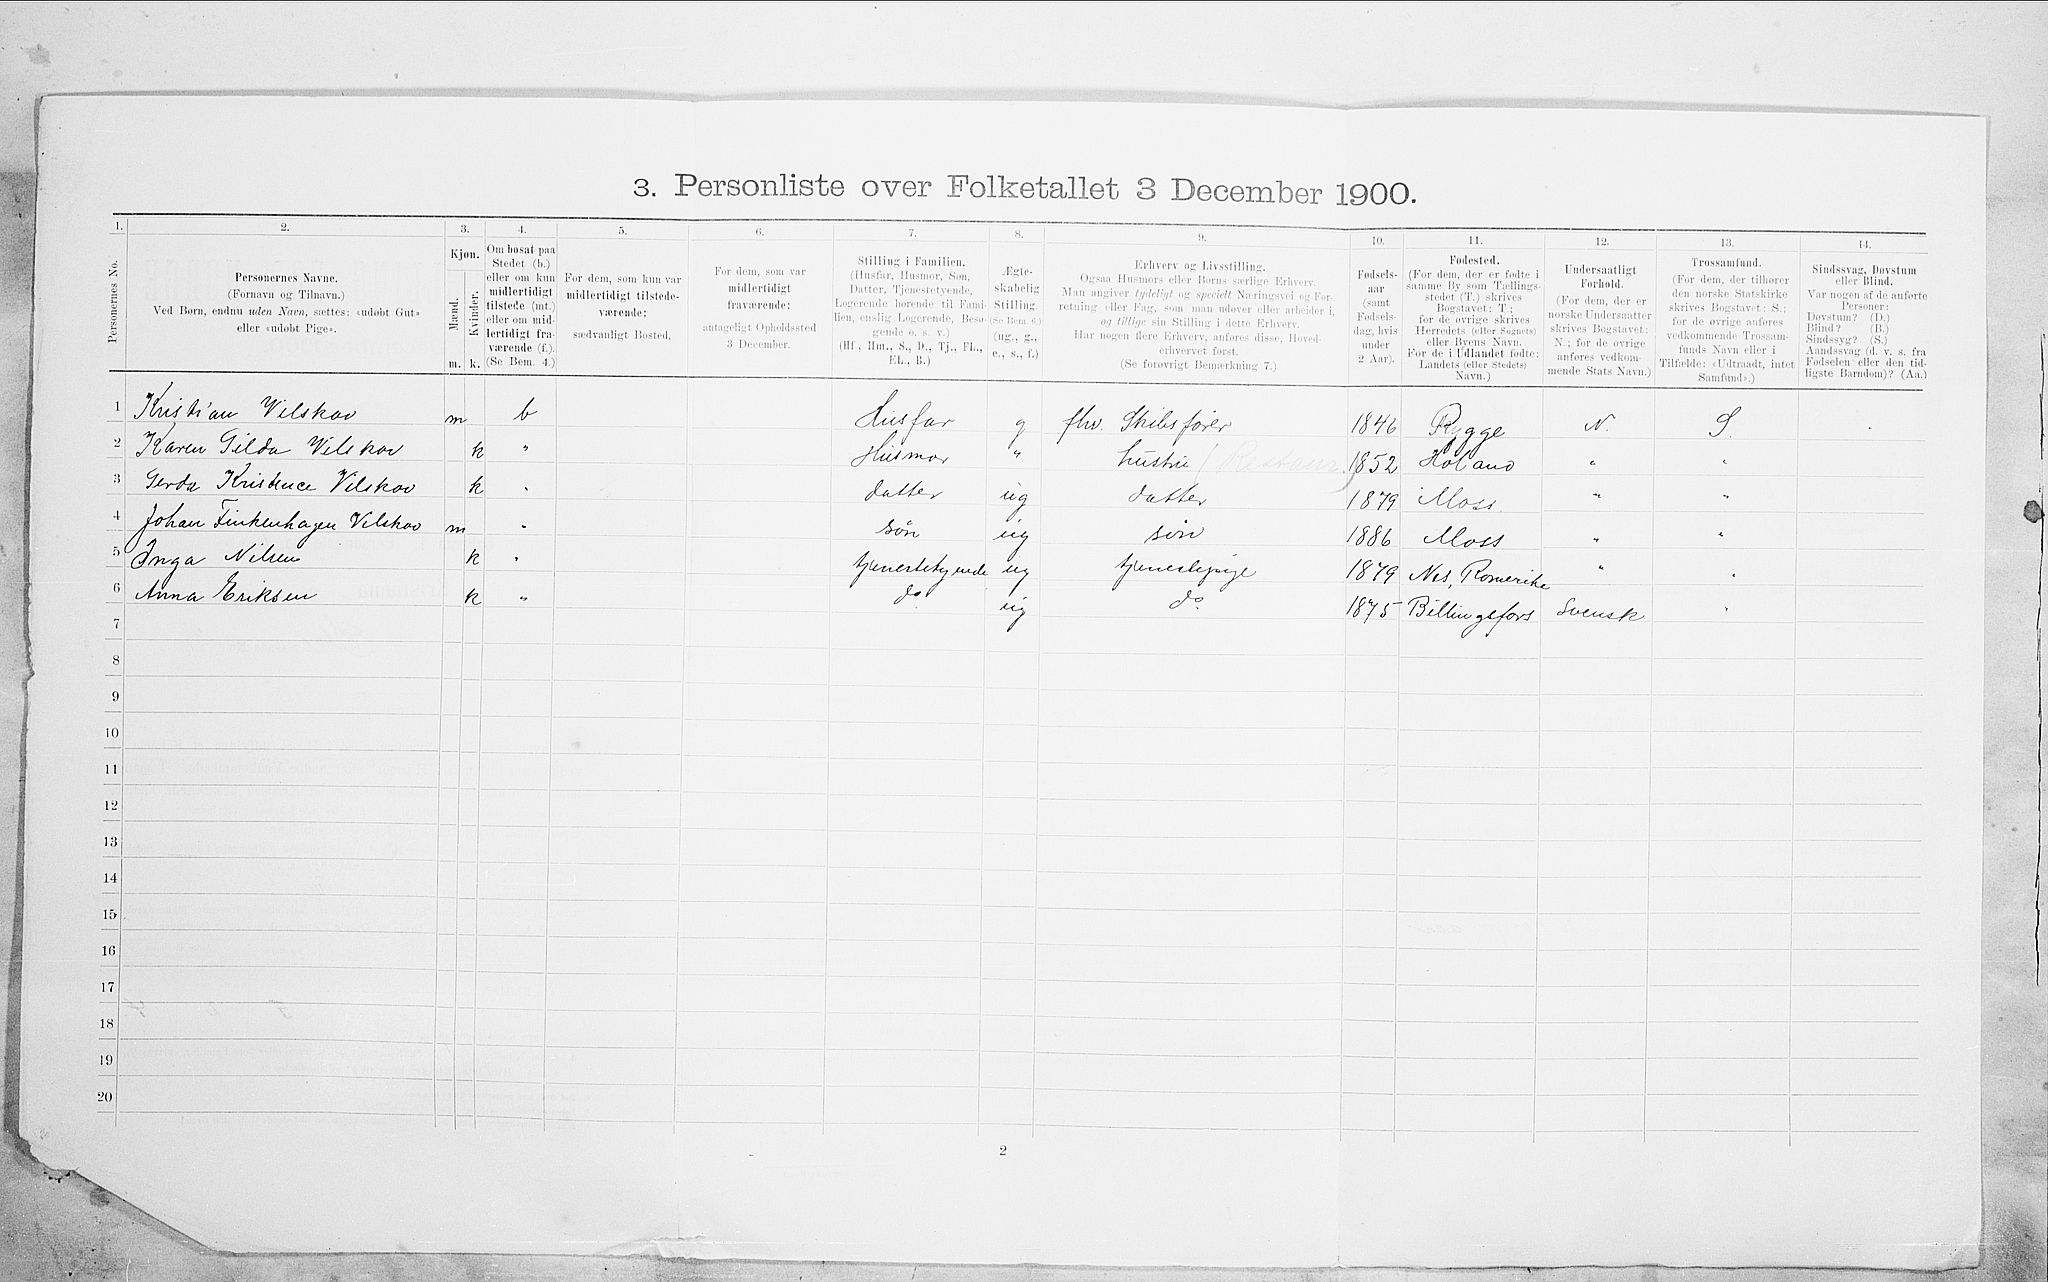 3. Personliste over Folketallet 3 December 1900.
1. 2. 3. 4. 5. 6. 7. 8. 9. 10. 11. 12. 13. 14.
Personernes No.
Personernes Navne.
(Fornavn og Tilnavn.)
Ved Børn, endnu uden Navn, sættes: «udøbt Gut»
eller «udøbt Pige».
Kjøn.
Mænd.
Kvinder.
m. k.
Om bosat paa
Stedet (b.)
eller om kun
midlertidigt
tilstede (mt.)
eller om mid-
lertidigt fra-
værende (f.).
(Se Bem. 4.)
For dem, som kun var
midlertidigt tilstede-
værende:
sædvanligt Bosted.
For dem, som var
midlertidigt
fraværende:
antageligt Opholdssted
3 December.
Stilling i Familien.
(Husfar, Husmor, Søn,
Datter, Tjenestetyende,
Logerende hørende til Fami-
lien, enslig Logerende, Besø-
gende o. s. v.)
(Hf, Hm., S., D., Tj., FL.,
EL., B.)
Ægte-
skabelig
Stilling.
(Se Bem. 6.)
(ug., g.,
e., s., f.)
Erhverv og Livsstilling.
Ogsaa Husmors eller Børns særlige Erhverv.
Man angiver tydeligt og specielt Næringsvei og For-
retning eller Fag, som man udøver eller arbeider i,
og tillige sin Stilling i dette Erhverv.
Har nogen flere Erhverv, anføres disse, Hoved-
erhvervet først.
(Se forøvrigt Bemærkning 7.)
Fødsels-
aar
(samt
Fødsels-
dag, hvis
under
2 Aar).
Fødested.
(For dem, der er fødte i
samme By som Tællings-
stedet (T.) skrives
Bogstavet: T.;
for de øvrige skrives
Herredets (eller Sognets)
eller Byens Navn.
For de i Udlandet fødte:
Landets (eller Stedets)
Navn.)
Undersaatligt
Forhold.
(For dem, der er
norske Undersaatter
skrives Bogstavet:
N.; for de øvrige
anføres vedkom-
mende Stats Navn.)
Trossamfund.
(For dem, der tilhører
den norske Statskirke
skrives Bogstavet: S.;
for de øvrige anføres
vedkommende Trossam-
funds Navn eller i
Tilfælde: «Udtraadt, intet
Samfund».)
Sindssvag, Døvstum
eller Blind.
Var nogen af de anførte
Personer:
Døvstum? (D.)
Blind? (B.)
Sindssyg? (S.)
Aandssvag (d. v. s. fra
Fødselen eller den tid-
ligste Barndom)? (Aa.)
1 Kristian Vilskov m b Husfar g fhv. Skibsfører 1846 Rygge N. S.
2 Karen Gilda Vilskov k " Husmor " hustru 1852 Høland " "
3 Gerda Kristence Vilskov k " datter ug datter 1879 Moss " "
4 Johan Finkenhagen Vilskov m " søn ug søn 1886 Moss " "
5 Inga Nilsen k " tjenestetyende ug tjenestepige 1879 Nes, Romerike " "
6 Anna Eriksen k " do ug do. 1875 Billingsfors Svensk "
7
8
9
10
11
12
13
14
15
16
17
18
19
20
2